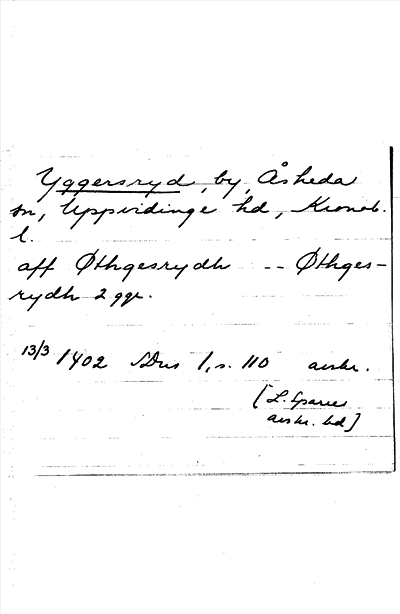 Yggersryd, by, Åsheda
sn, Uppvidinge hd, Kronob.
l.
aff Øthgesrydh -- Øthges-
rydh 2 ggr.
13/3 1402 SDns 1, s. 110 avskr.
[L. Sparre
avskr. bd]